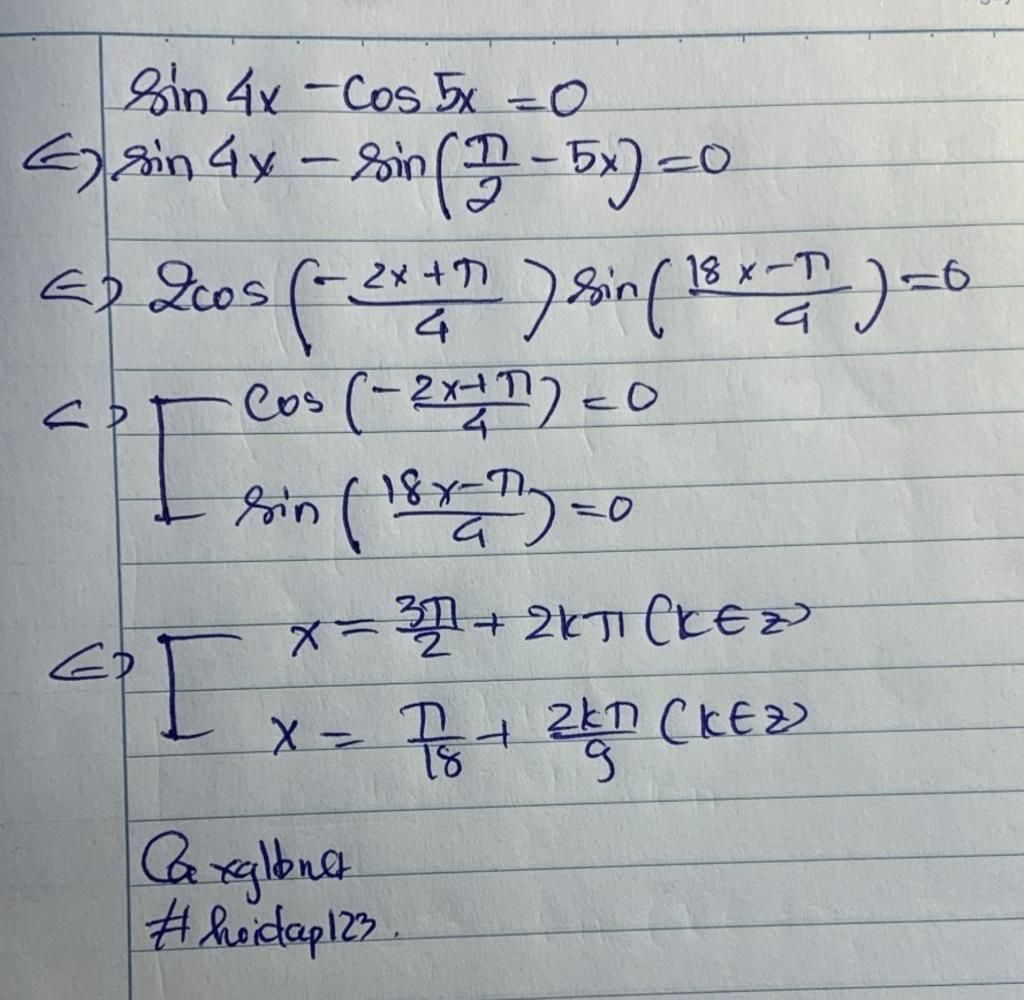 sin 4x - cos 5x = 0
<=> sin 4x - sin(π/2 - 5x) = 0
<=> 2cos(-2x+π/4) sin(18x-π/4) = 0
<=> [ cos(-2x+π/4) = 0
sin(18x-π/4) = 0
<=> [ x = 3π/2 + 2kπ (k∈z)
x = π/18 + 2kπ/9 (k∈z)
#hoidap123.